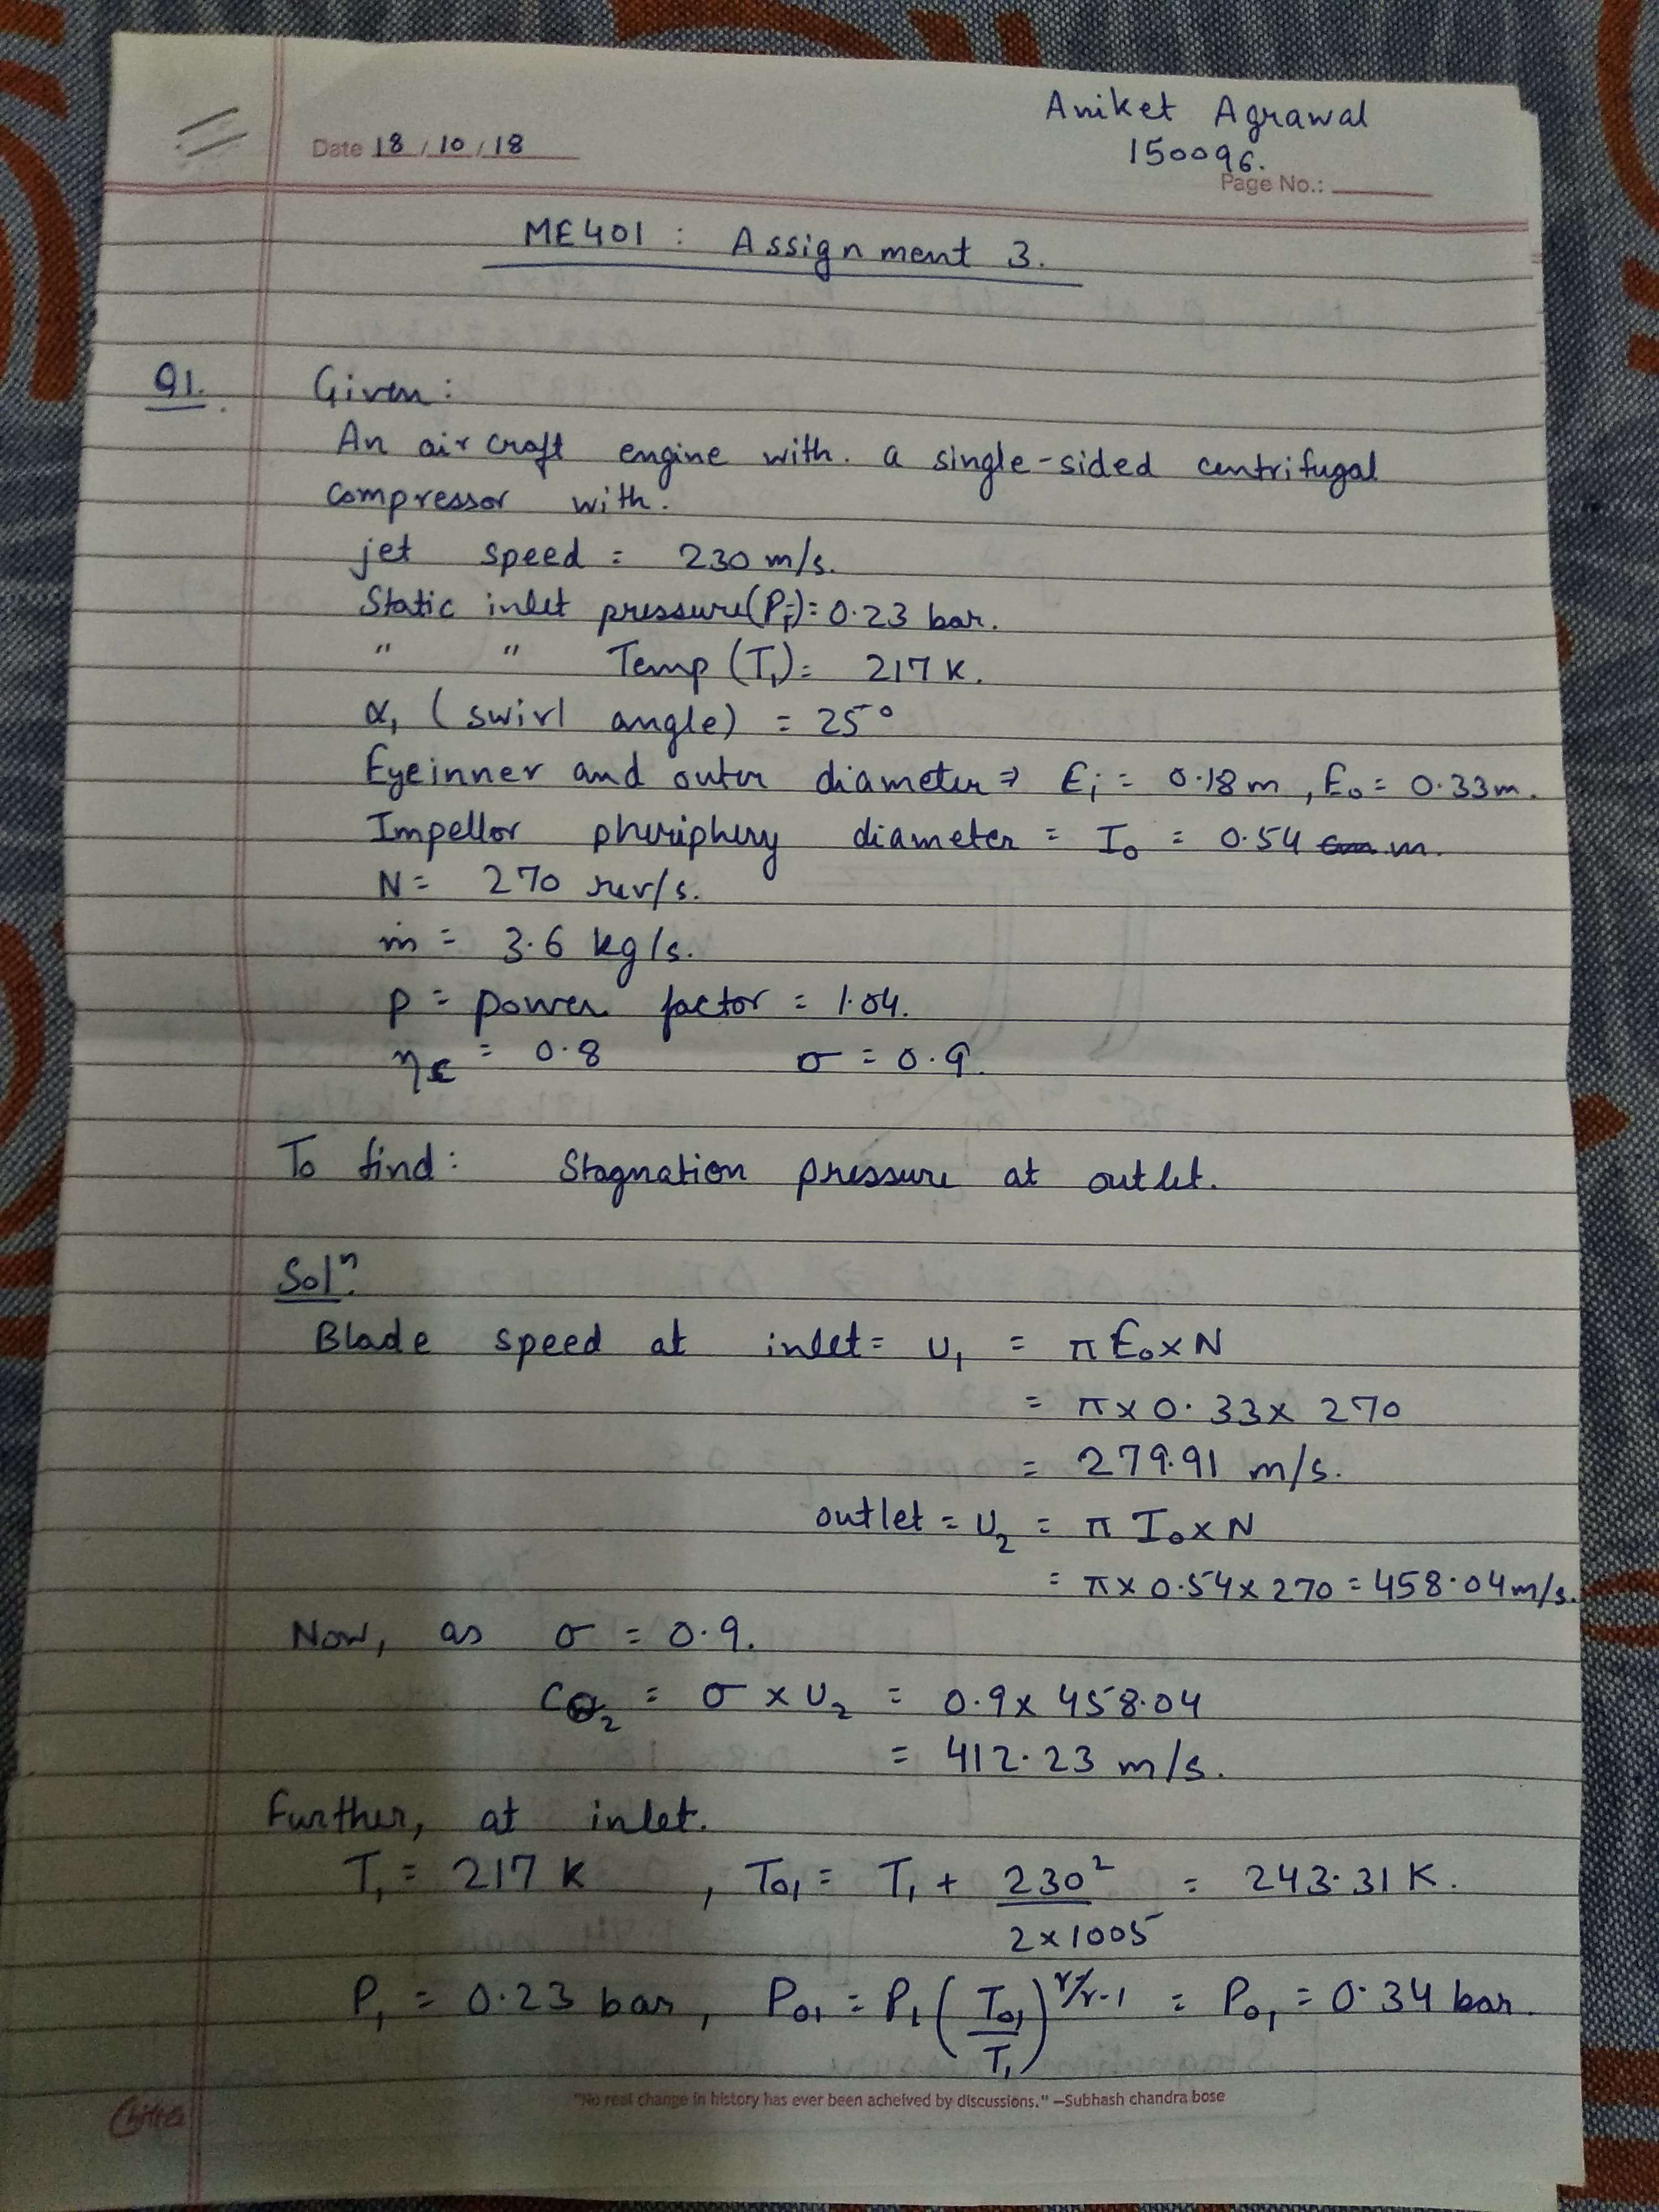 Aniket Agrawal
Date 18/10/18
150096.
Page No.:
ME401 : Assignment 3.
Q1. Given:
An aircraft engine with. a single-sided centrifugal
compressor with.
jet speed = 230 m/s.
Static inlet pressure(P₁)= 0.23 bar.
" " Temp (T₁)= 217 K.
α₁ (swirl angle) = 25°
Eyeinner and outer diameter ⇒ Ei = 0.18m, Eo = 0.33m.
Impellor pheriphery diameter = Io = 0.54 m.
N = 270 rev/s.
ṁ = 3.6 kg/s.
p = power factor = 1.04.
ηc = 0.8 σ = 0.9.
To find: Stagnation pressure at outlet.
Solⁿ.
Blade speed at inlet = U₁ = π Eo × N
= π × 0.33 × 270
= 279.91 m/s.
outlet = U₂ = π Io × N
= π × 0.54 × 270 = 458.04 m/s.
Now, as σ = 0.9.
Cθ₂ = σ × U₂ = 0.9 × 458.04
= 412.23 m/s.
Further, at inlet.
T₁ = 217 K , T₀₁ = T₁ + 230² / 2×1005 = 243.31 K.
P₁ = 0.23 bar, P₀₁ = P₁ (T₀₁/T₁)^γ/γ-1 = P₀₁ = 0.34 bar.
"No real change in history has ever been acheived by discussions." –Subhash chandra bose